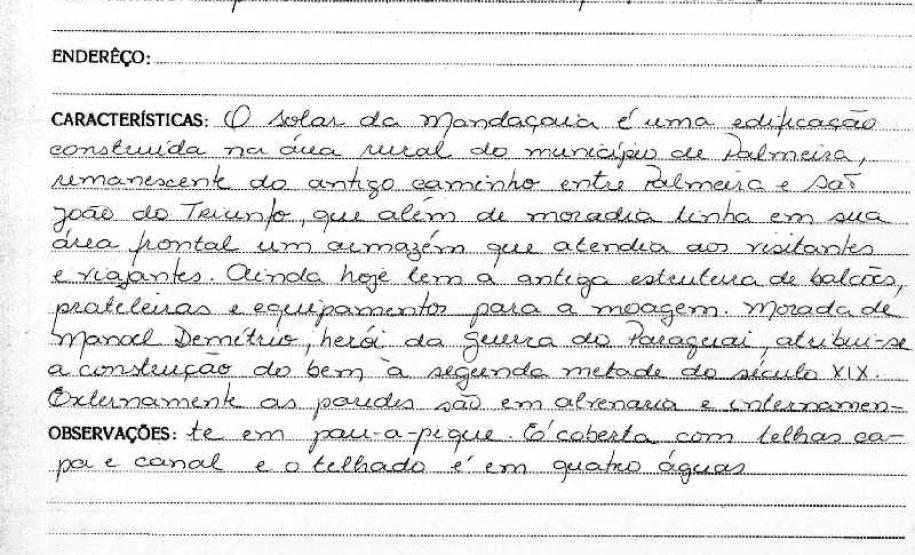 ENDERÊÇO:
CARACTERÍSTICAS: O solar da Mandaçaia é uma edificação
construída na área rural do município de Palmeira,
remanescente do antigo caminho entre Palmeira e São
João do Triunfo, que além de moradia tinha em sua
área frontal um armazém que atendia aos visitantes
e viajantes. Ainda hoje tem a antiga estrutura de balcões,
prateleiras e equipamentos para a moagem. Morada de
Manoel Demétrio, herói da Guerra do Paraguai, atribui-se
a construção do bem à segunda metade do século XIX.
Externamente as paredes são em alvenaria e internamen-
OBSERVAÇÕES: te em pau-a-pique. É coberta com telhas ca-
pa e canal e o telhado é em quatro águas